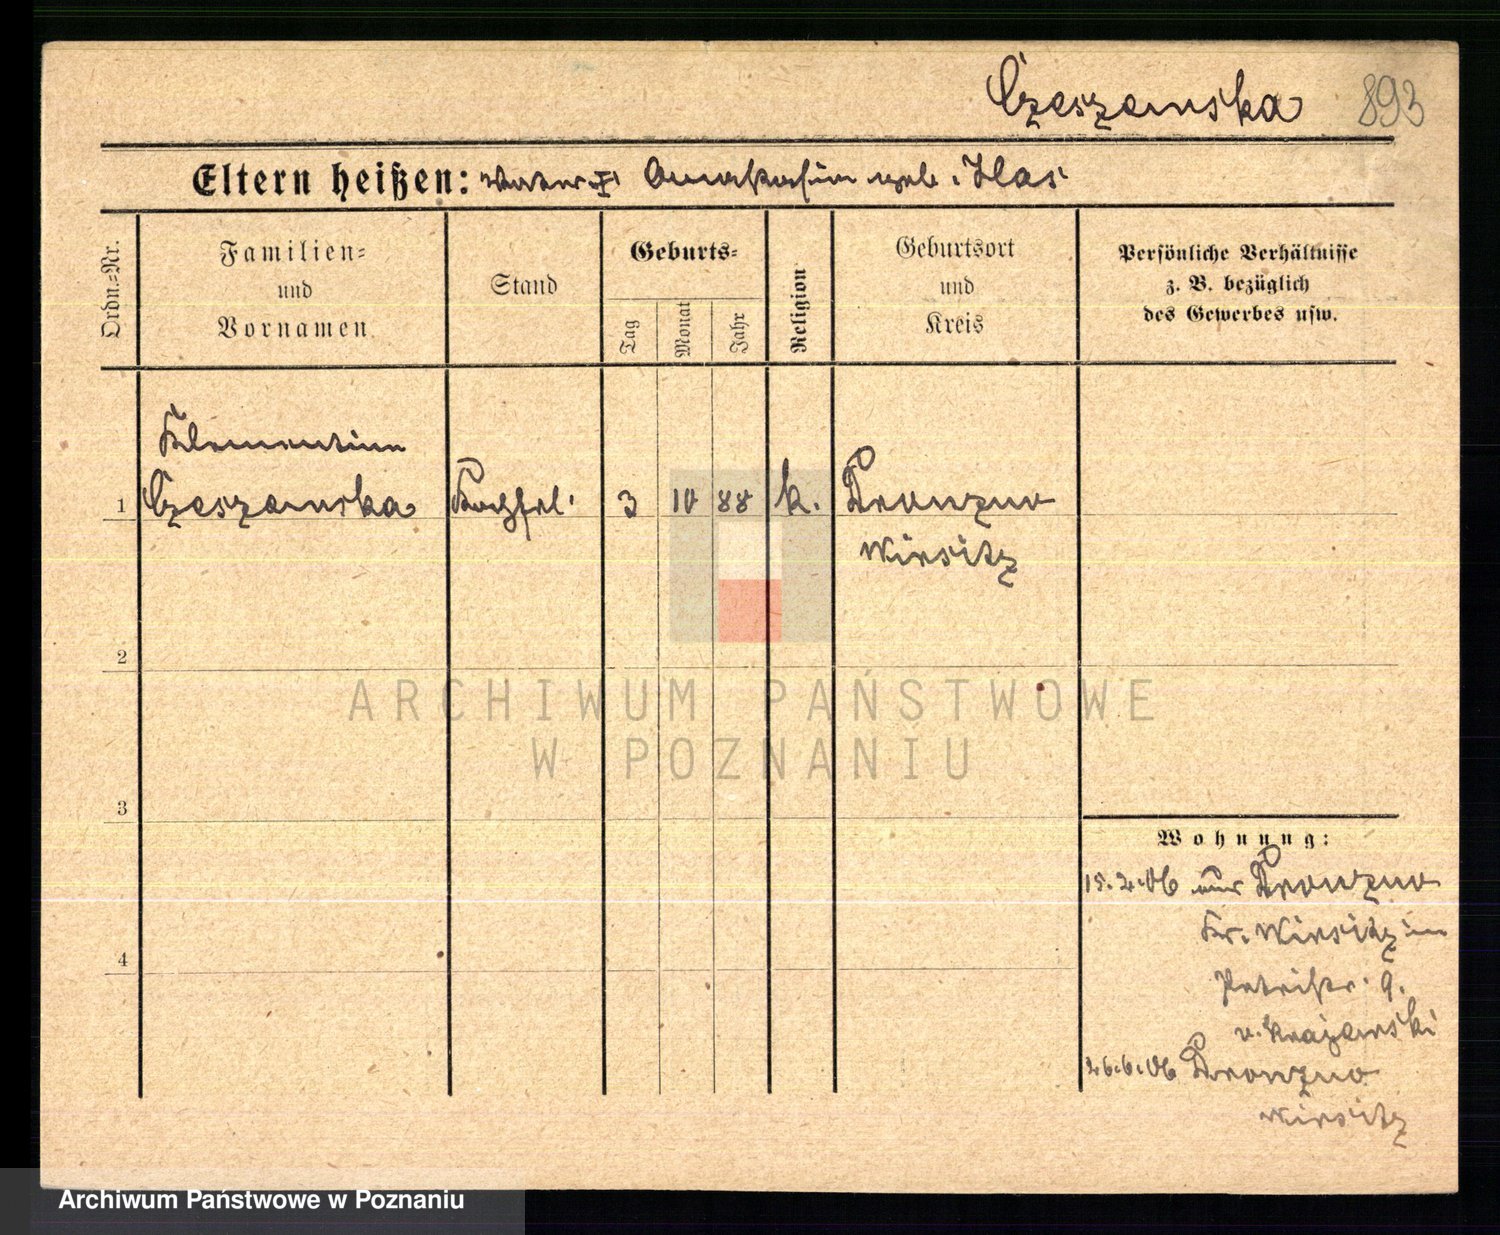 Czeszewska 893
Eltern heißen: Vater † geb. Ilas
Ordn.-Nr.
Familien-
und
Vornamen
Stand
Geburts-
Tag
Monat
Jahr
Religion
Geburtsort
und
Kreis
Persönliche Verhältnisse
z. B. bezüglich
des Gewerbes usw.
Klementine
1 Czeszewska 3 10 88 k. Dronzno
Wirsitz
2
3
4
Wohnung:
15.2.06 aus Dronzno
Kr. Wirsitz in
Petristr. 9.
26.6.06 Dronzno
Wirsitz
ARCHIWUM PAŃSTWOWE
W POZNANIU
Archiwum Państwowe w Poznaniu